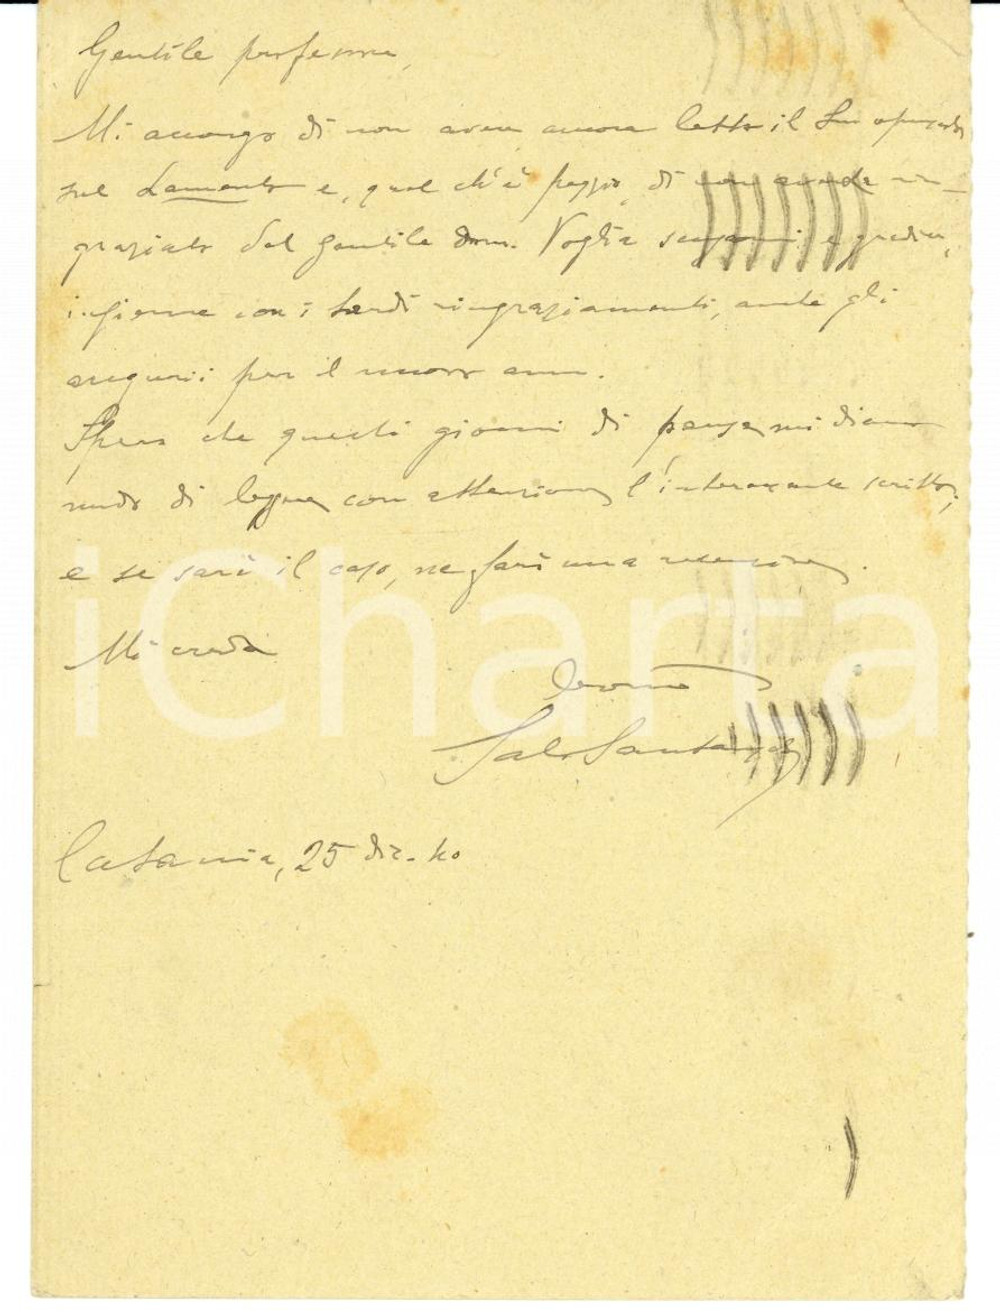 Gentile professore,
Mi accorgo di non avere ancora letto il Suo opuscolo
sul Lamento e, quel ch'è peggio, di non averla rin-
graziato del gentile dono. Voglia scusarmi e gradire,
insieme con i tardi ringraziamenti, anche gli
auguri per il nuovo anno.
Spero che questi giorni di pausa mi diano
modo di leggere con attenzione l'interessante scritto;
e se sarà il caso, ne farò una recensione.
Mi creda
Salv. Santangelo
Catania, 25 dic. 40
iCharta